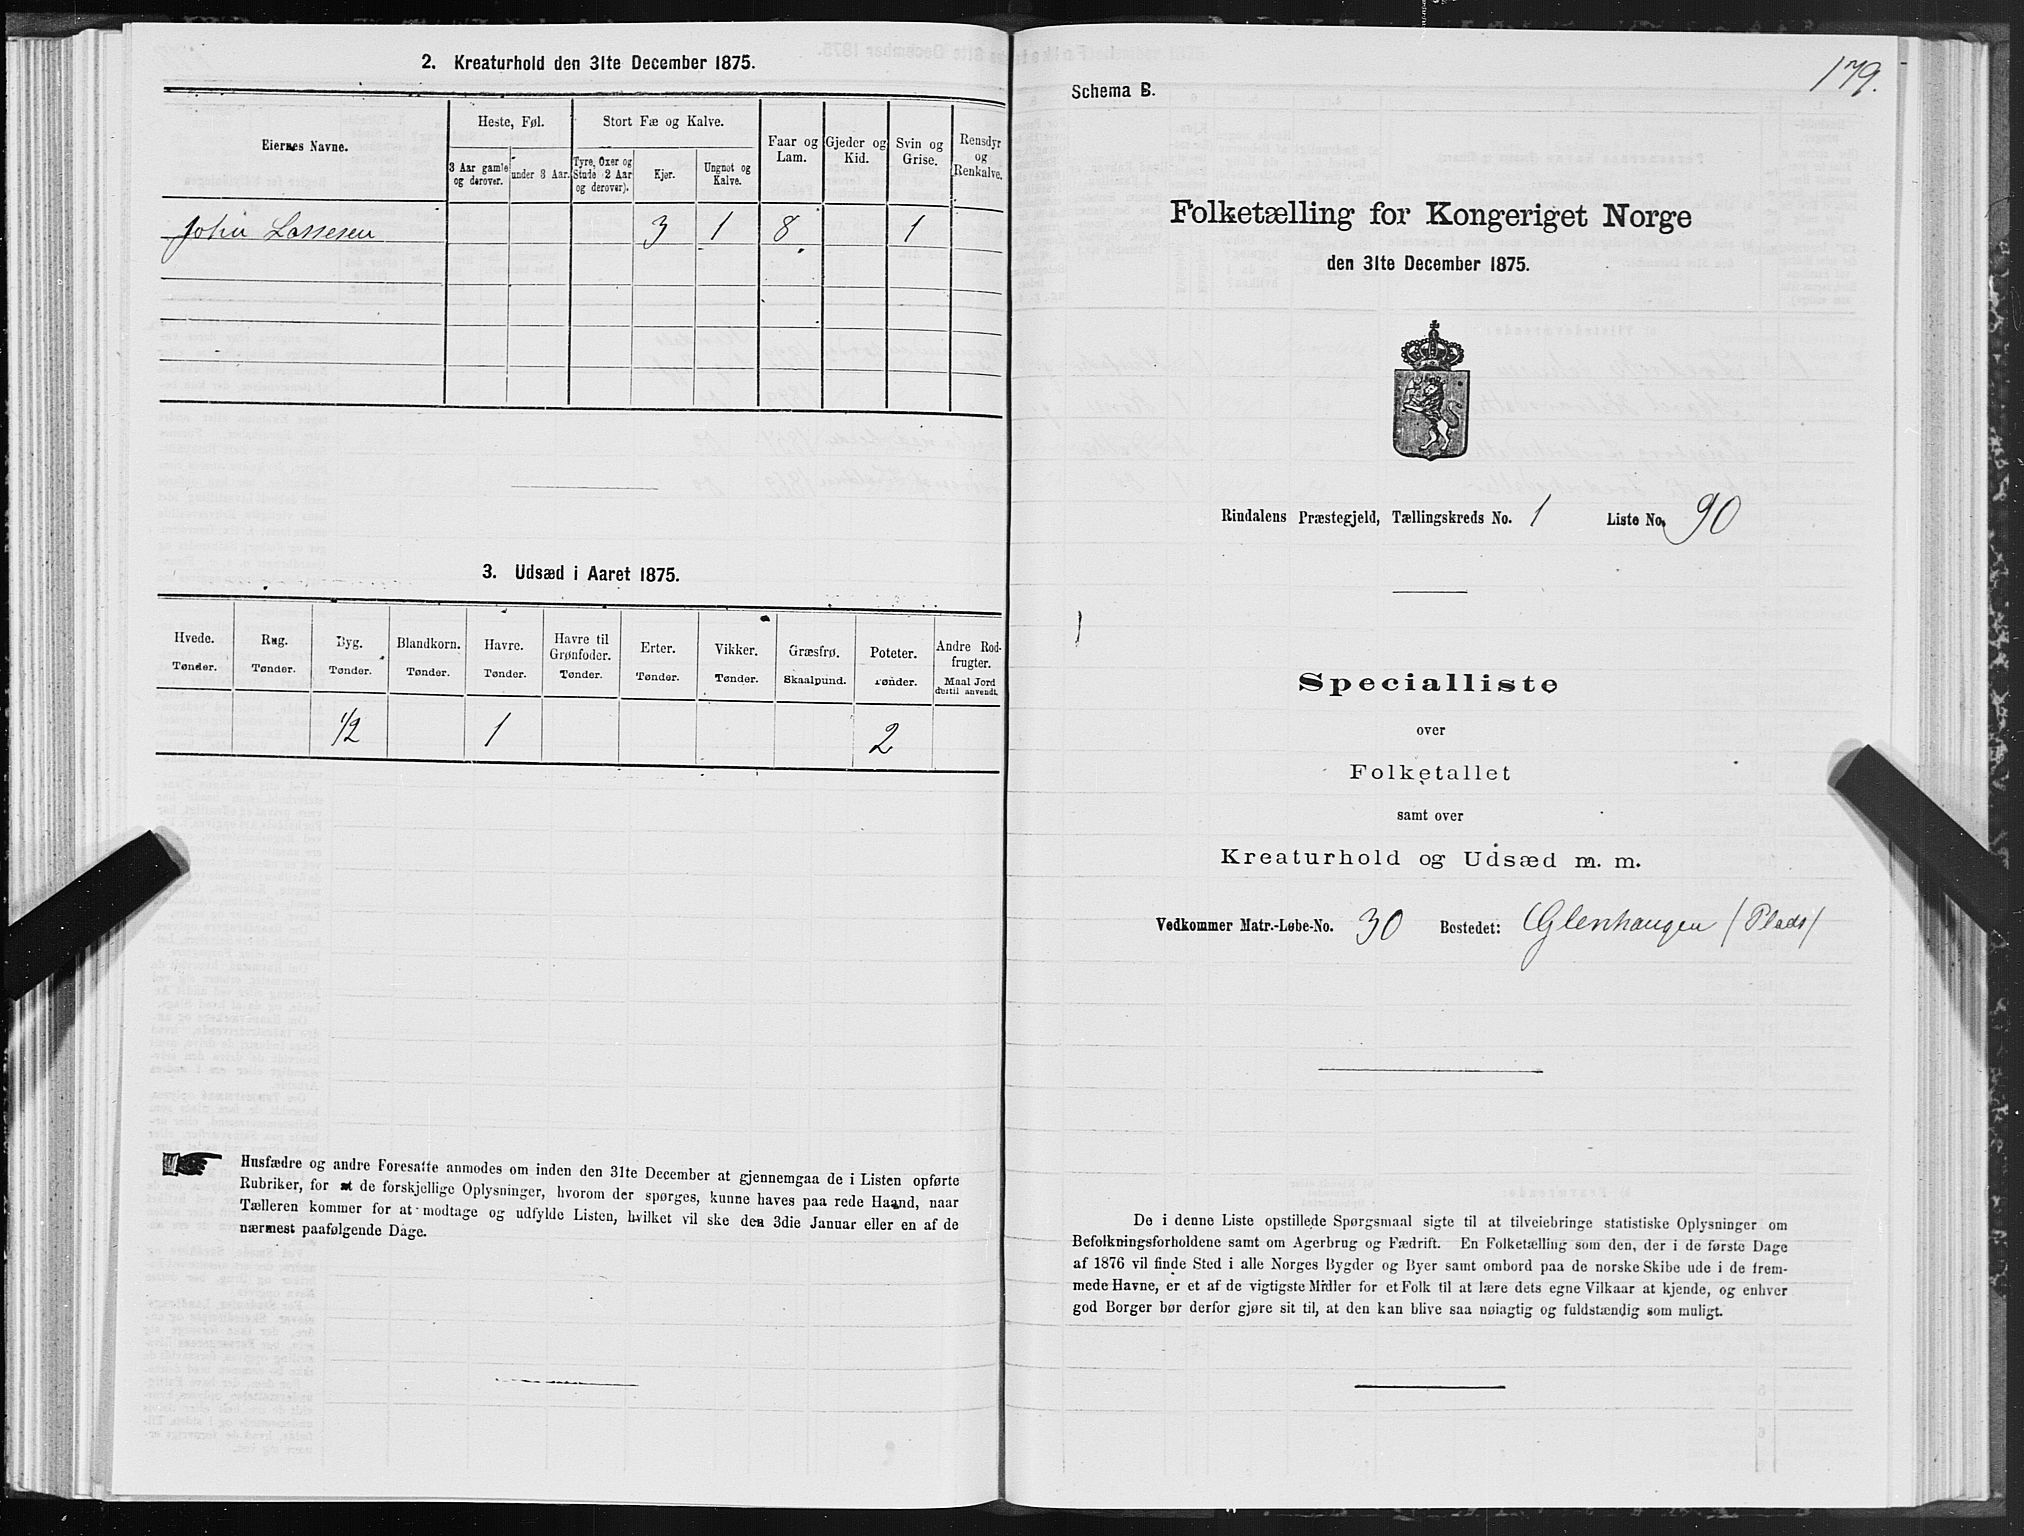 2. Kreaturhold den 31te December 1875.
Eiernes Navne.
Heste, Føl.
3 Aar gamle og derover.
under 3 Aar.
Stort Fæ og Kalve.
Tyre, Oxer og Stude (2 Aar og derover).
Kjør.
Ungnot og Kalve.
Faar og Lam.
Gjeder og Kid.
Svin og Grise.
Rensdyr og Renkalve.
John Lassesen 3 1 8 1
3. Udsæd i Aaret 1875.
Hvede. Rug. Byg. Blandkorn. Havre. Havre til Grønfoder. Erter. Vikker. Græsfrø. Poteter. Andre Rodfrugter.
Tønder. Tønder. Tønder. Tønder. Tønder. Tønder. Tønder. Tønder. Skaalpund. Tønder. Maal Jord dertil anvendt.
1/2 1 2
Husfædre og andre Foresatte anmodes om inden den 31te December at gjennemgaa de i Listen opførte
Rubriker, for at de forskjellige Oplysninger, hvorom der spørges, kunne haves paa rede Haand, naar
Tælleren kommer for at modtage og udfylde Listen, hvilket vil ske den 3die Januar eller en af de
nærmest paafølgende Dage.
179.
Schema B.
Folketælling for Kongeriget Norge
den 31te December 1875.
Rindalens Præstegjeld, Tællingskreds No. 1 Liste No. 90
Specialliste
over
Folketallet
samt over
Kreaturhold og Udsæd m. m.
Vedkommer Matr.-Løbe-No. 30 Bostedet: Glenhaugen (Plads)
De i denne Liste opstillede Spørgsmaal sigte til at tilveiebringe statistiske Oplysninger om
Befolkningsforholdene samt om Agerbrug og Fædrift. En Folketælling som den, der i de første Dage
af 1876 vil finde Sted i alle Norges Bygder og Byer samt ombord paa de norske Skibe ude i de frem-
mede Havne, er et af de vigtigste Midler for et Folk til at lære dets egne Vilkaar at kjende, og enhver
god Borger bør derfor gjøre sit til, at den kan blive saa nøiagtig og fuldstændig som muligt.